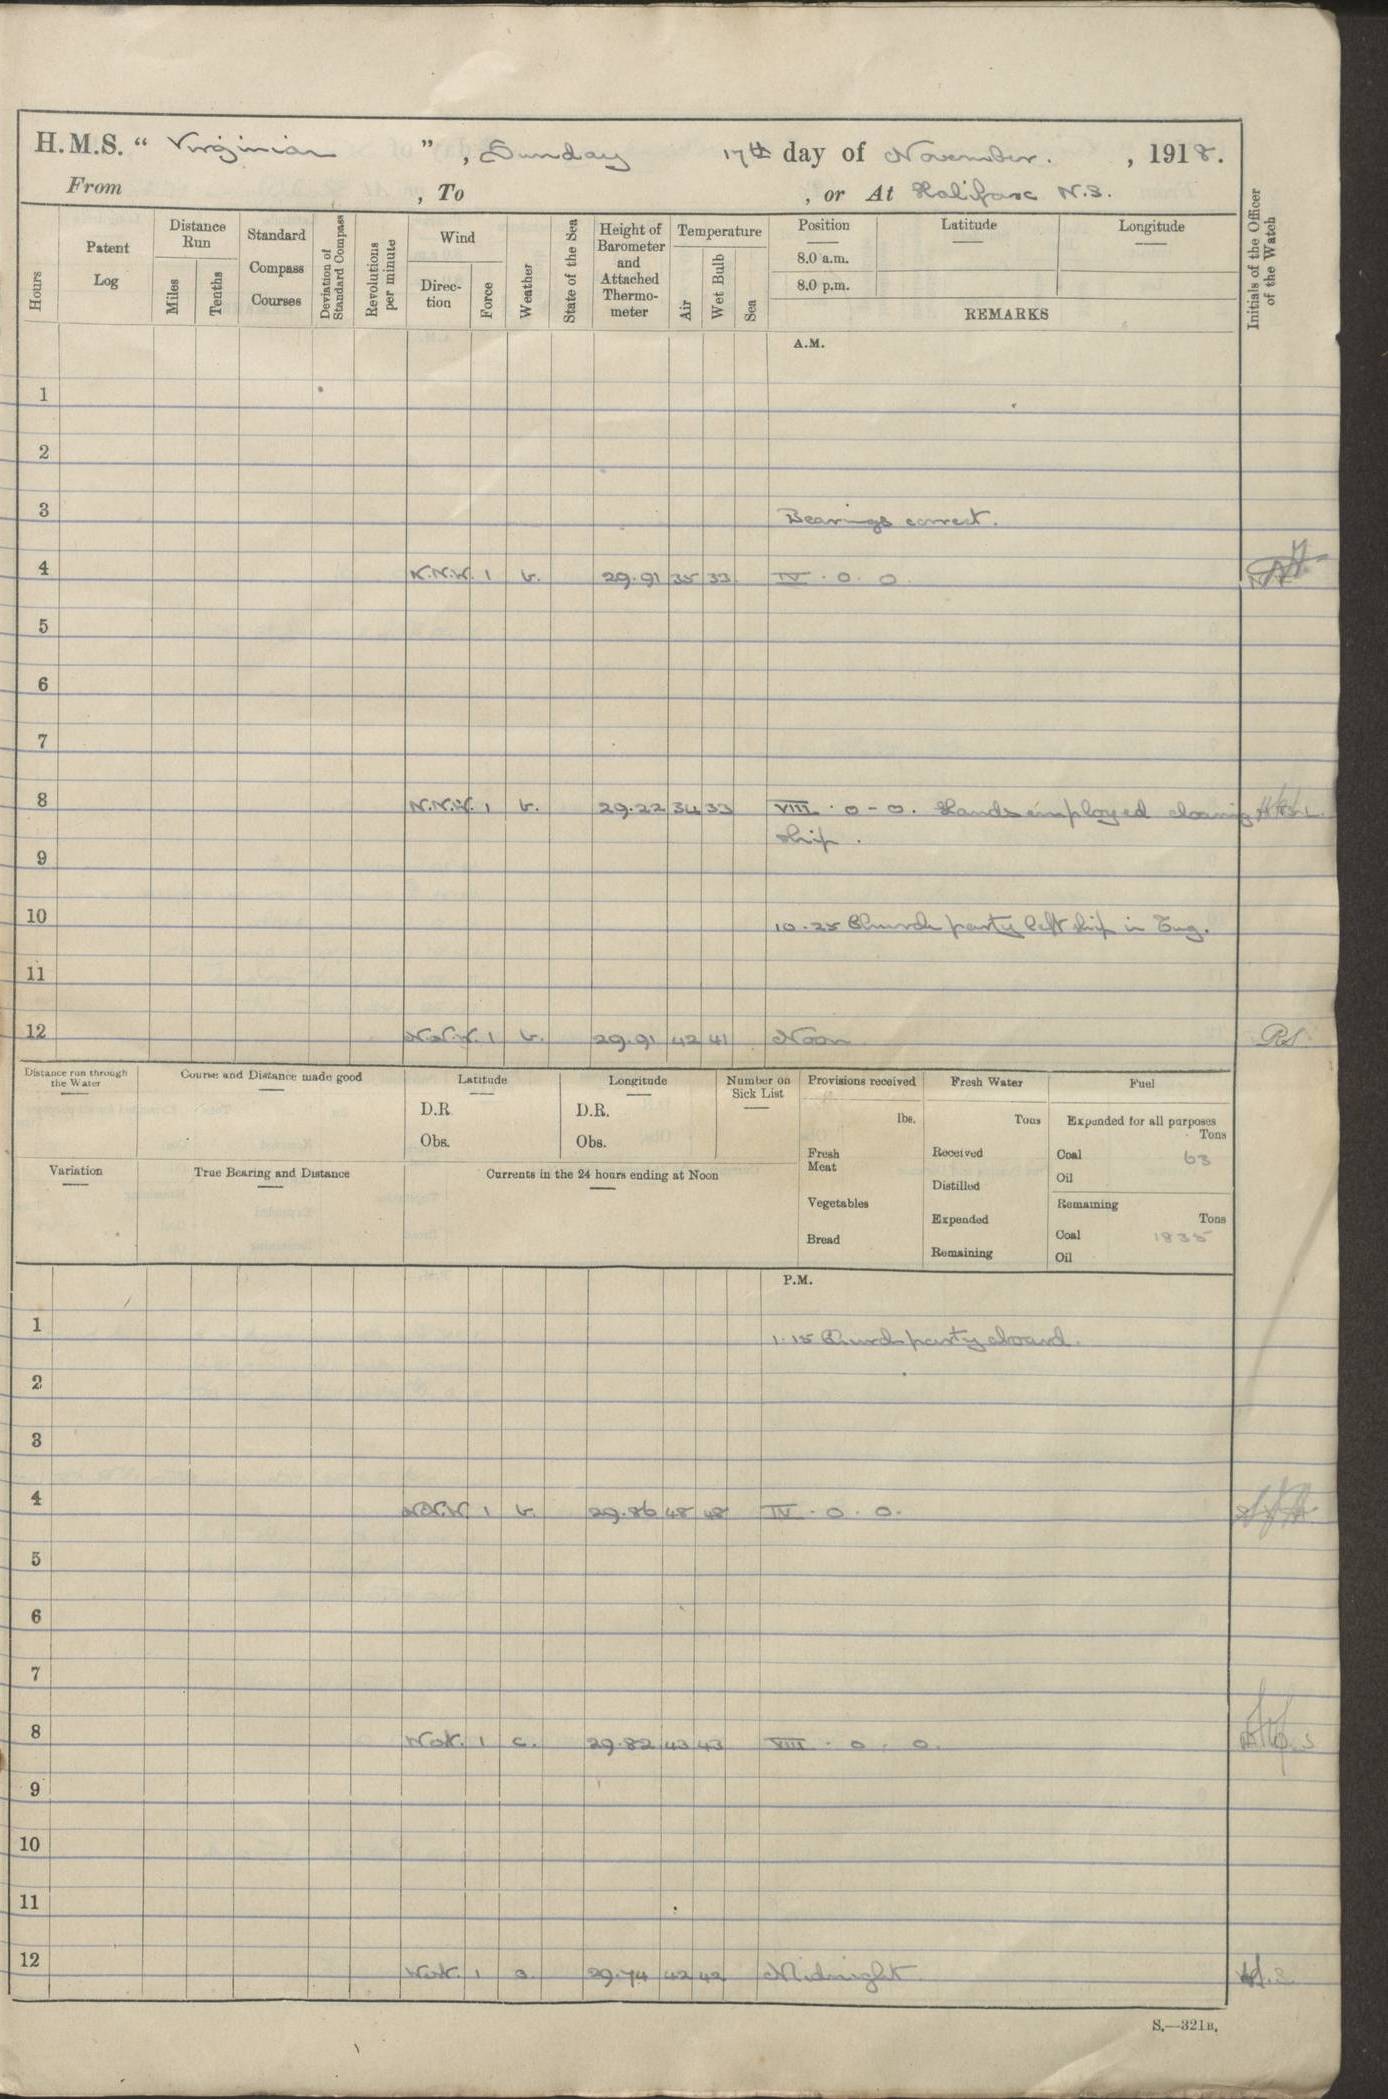 H.M.S. “ Virginian ” , Sunday 17th day of November. , 1918.
From , To , or At Halifax N.S.
Hours Patent Log Distance Run Miles Tenths Standard Compass Courses Deviation of Standard Compass Revolutions per minute Wind Direction Force Weather State of the Sea Height of Barometer and Attached Thermometer Temperature Air Wet Bulb Sea Position 8.0 a.m. 8.0 p.m. Latitude Longitude REMARKS Initials of the Officer of the Watch
A.M.
1
2
3 Bearings correct.
4 N.N.W. 1 b. 29.91 35 33 IV . 0. 0
5
6
7
8 N.N.W. 1 b. 29.22 34 33 VIII . 0 - 0. Hands employed cleaning
ship.
9
10 10.25 Church party left ship in Tug.
11
12 N.N.W. 1 b. 29.91 42 41 Noon R.S.
Distance run through the Water Course and Distance made good Latitude Longitude Number on Sick List Provisions received Fresh Water Fuel
D.R. D.R. lbs. Tons Expended for all purposes Tons
Obs. Obs. Fresh Meat Received Coal 63
Variation True Bearing and Distance Currents in the 24 hours ending at Noon Distilled Oil
Vegetables Expended Remaining Tons
Bread Coal 1835
Remaining Oil
P.M.
1 1.15 Church party aboard.
2
3
4 N.N.W. 1 b. 29.86 48 48 IV . 0. 0.
5
6
7
8 1 c. 29.82 43 43 VIII . 0. 0.
9
10
11
12 1 29.74 42 42 Midnight
S.—321B.